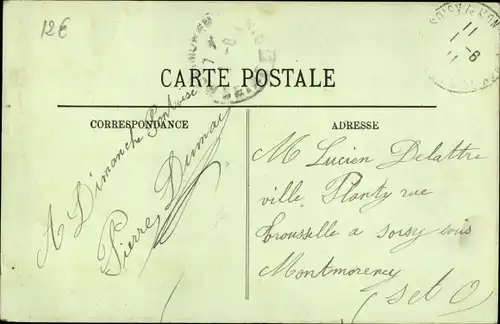 12€
CARTE POSTALE
CORRESPONDANCE
ADRESSE
A Dimanche Pontoise
Pierre Dumay
M Lucien Delattre
ville Planty rue
trousselle a soisy sous
Montmorency
(S et O)
SOISY S MON
11
1 - 8
11